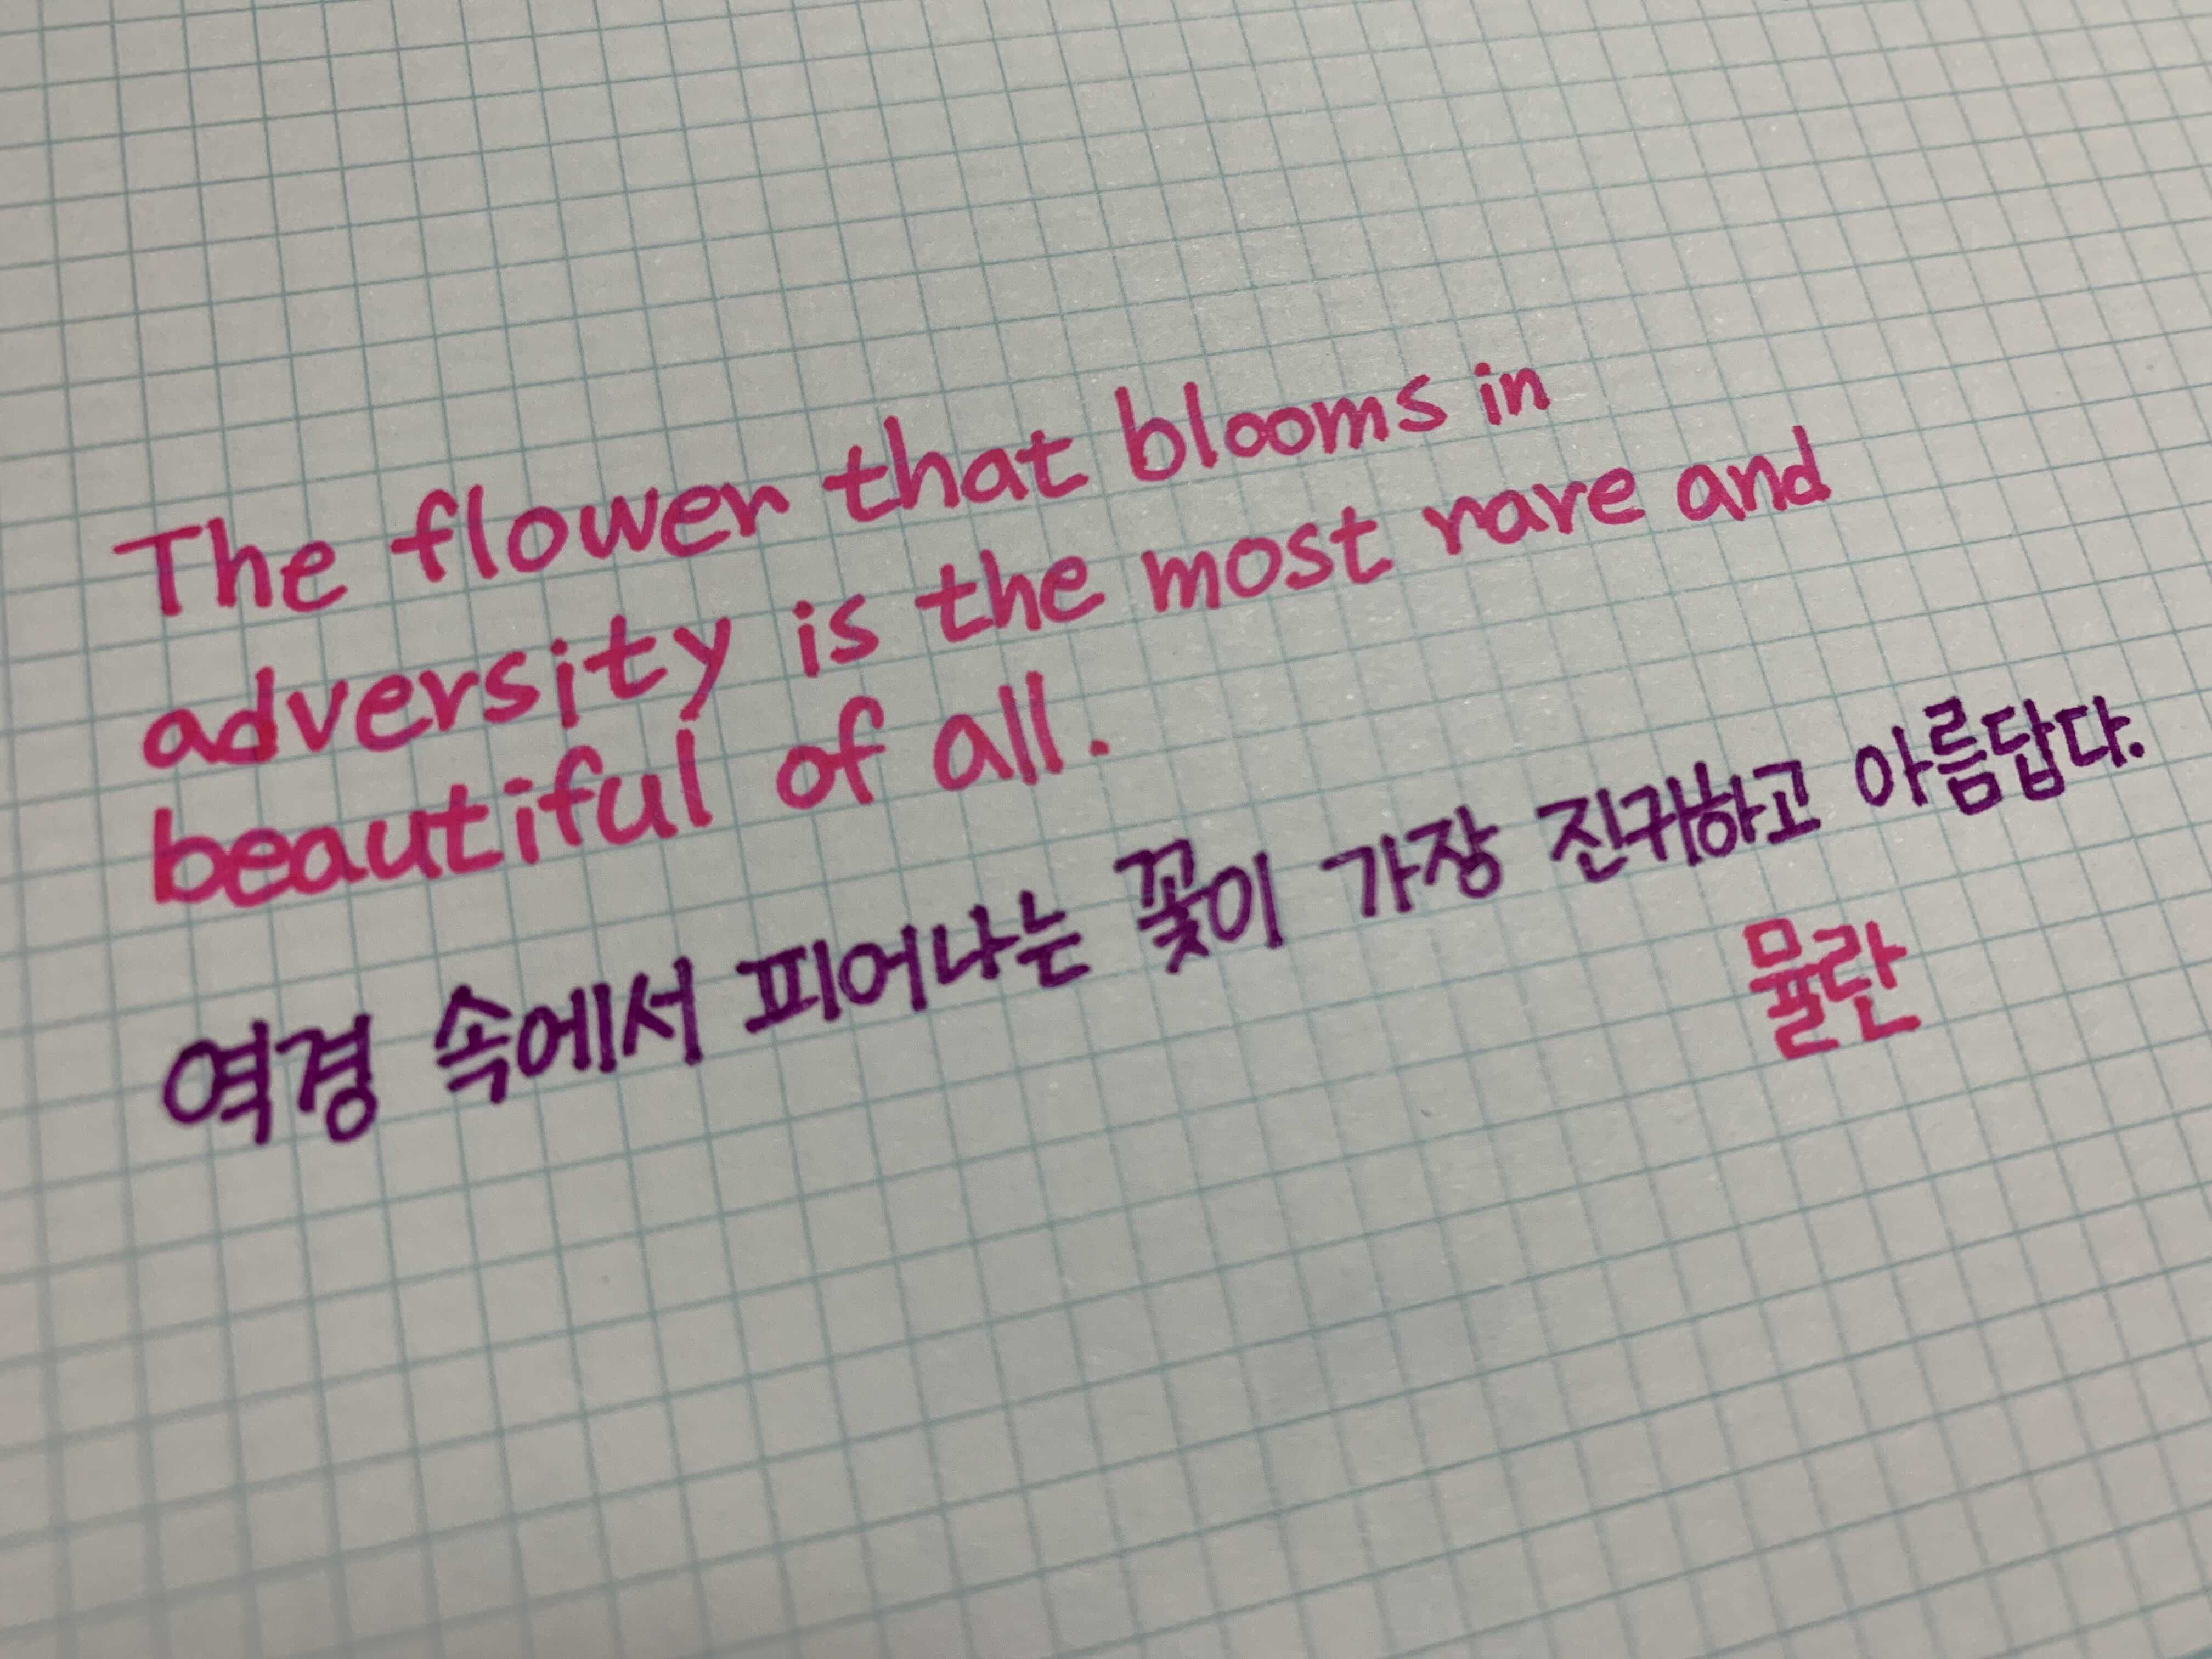 The flower that blooms in
adversity is the most rare and
beautiful of all.
역경 속에서 피어나는 꽃이 가장 진귀하고 아름답다.
뮬란